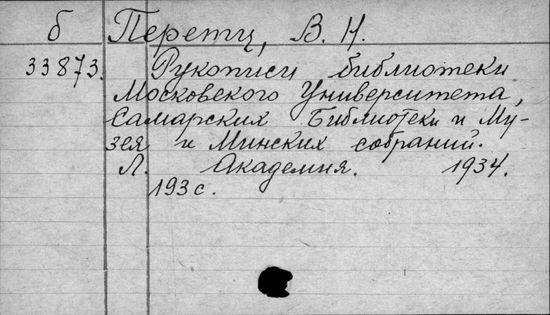 б Перетц, В. Н.
33873. Рукописи библиотеки
Московского Университета,
Самарских Библиотеки и Му-
зея и Минских собраний.
Л. Академия. 1934.
193 с.